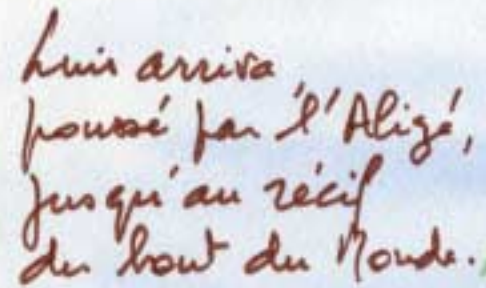 Luis arriva
poussé par l'Aligé,
jusqu'au récif
du bout du Monde.